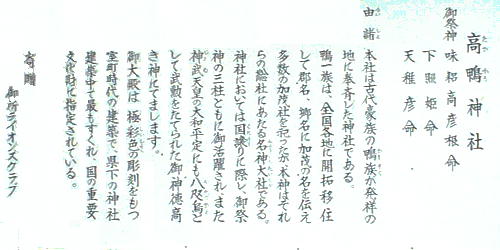 高鴨神社
御祭神 味耜高彦根命
下照姫命
天稚彦命
由緒 本社は古代豪族の鴨族が発祥の
地に奉斉した神社である。
鴨一族は、全国各地に開拓移住
して郡名、郷名に加茂の名を伝え
多数の加茂社を祀ったが、本神はそれ
らの総社にあたる名神大社である。
神社においては国譲りに際し、御祭
神の三柱ともに御活躍され、また
神武天皇の大和平定にも八咫烏と
して武勲をたてられた御神徳高
き神にてまします。
御大殿は極彩色の彫刻をもつ
室町時代の建築で、県下の神社
建築中で最もすぐれ、国の重要
文化財に指定されている。
寄贈
御所ライオンズクラブ